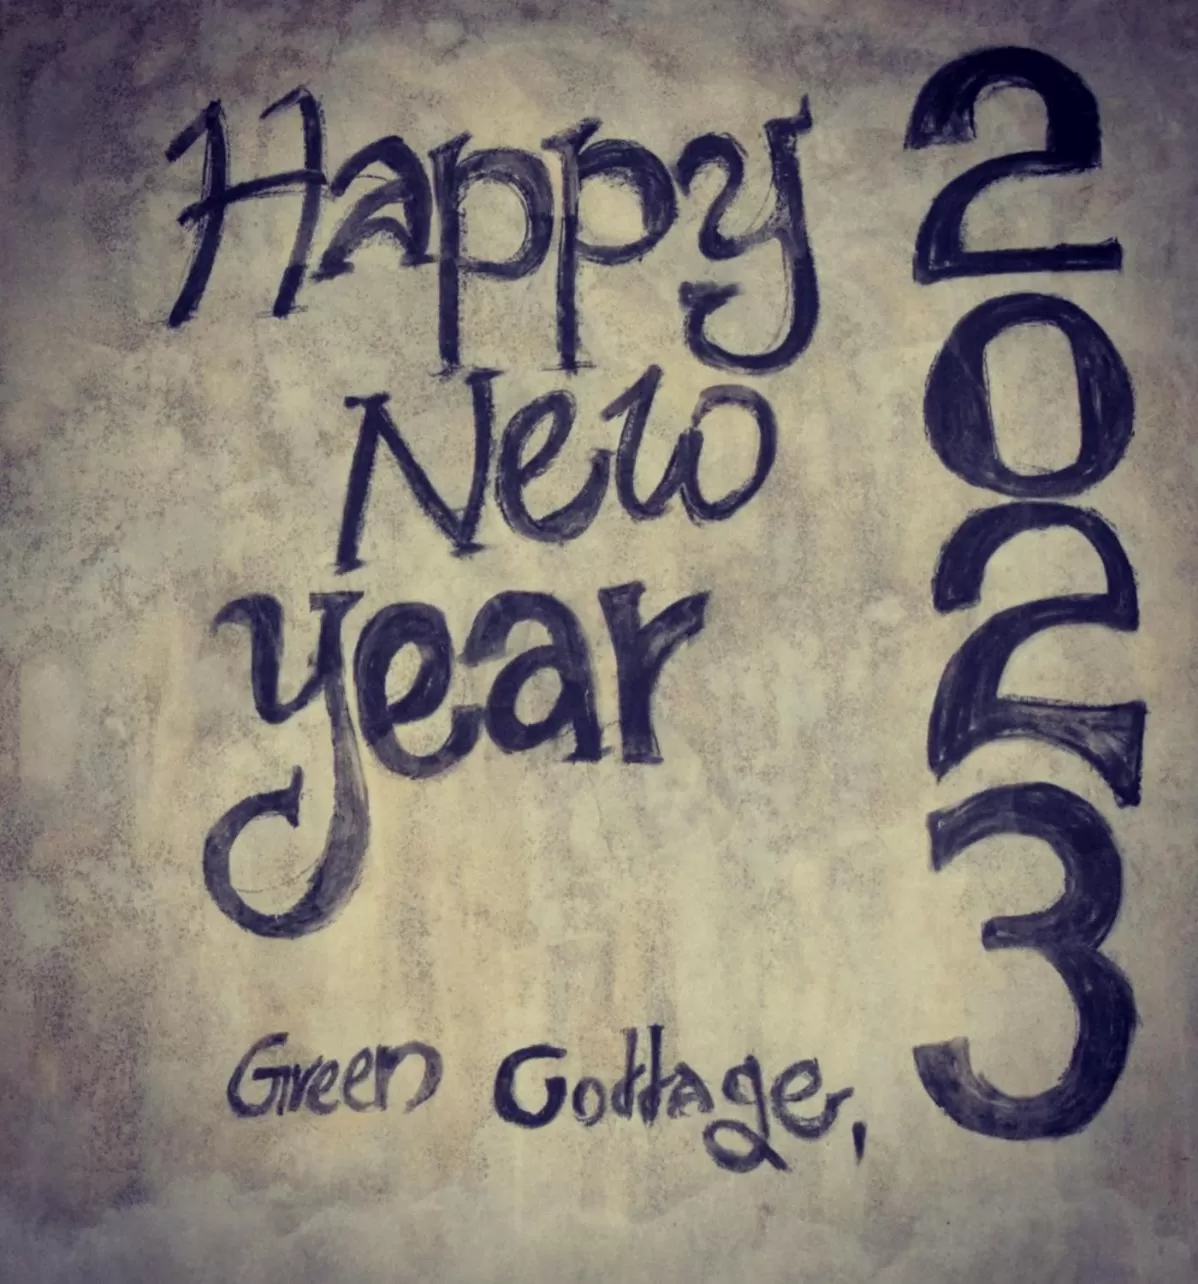 Happy
New
year
2023
Green Cottage,